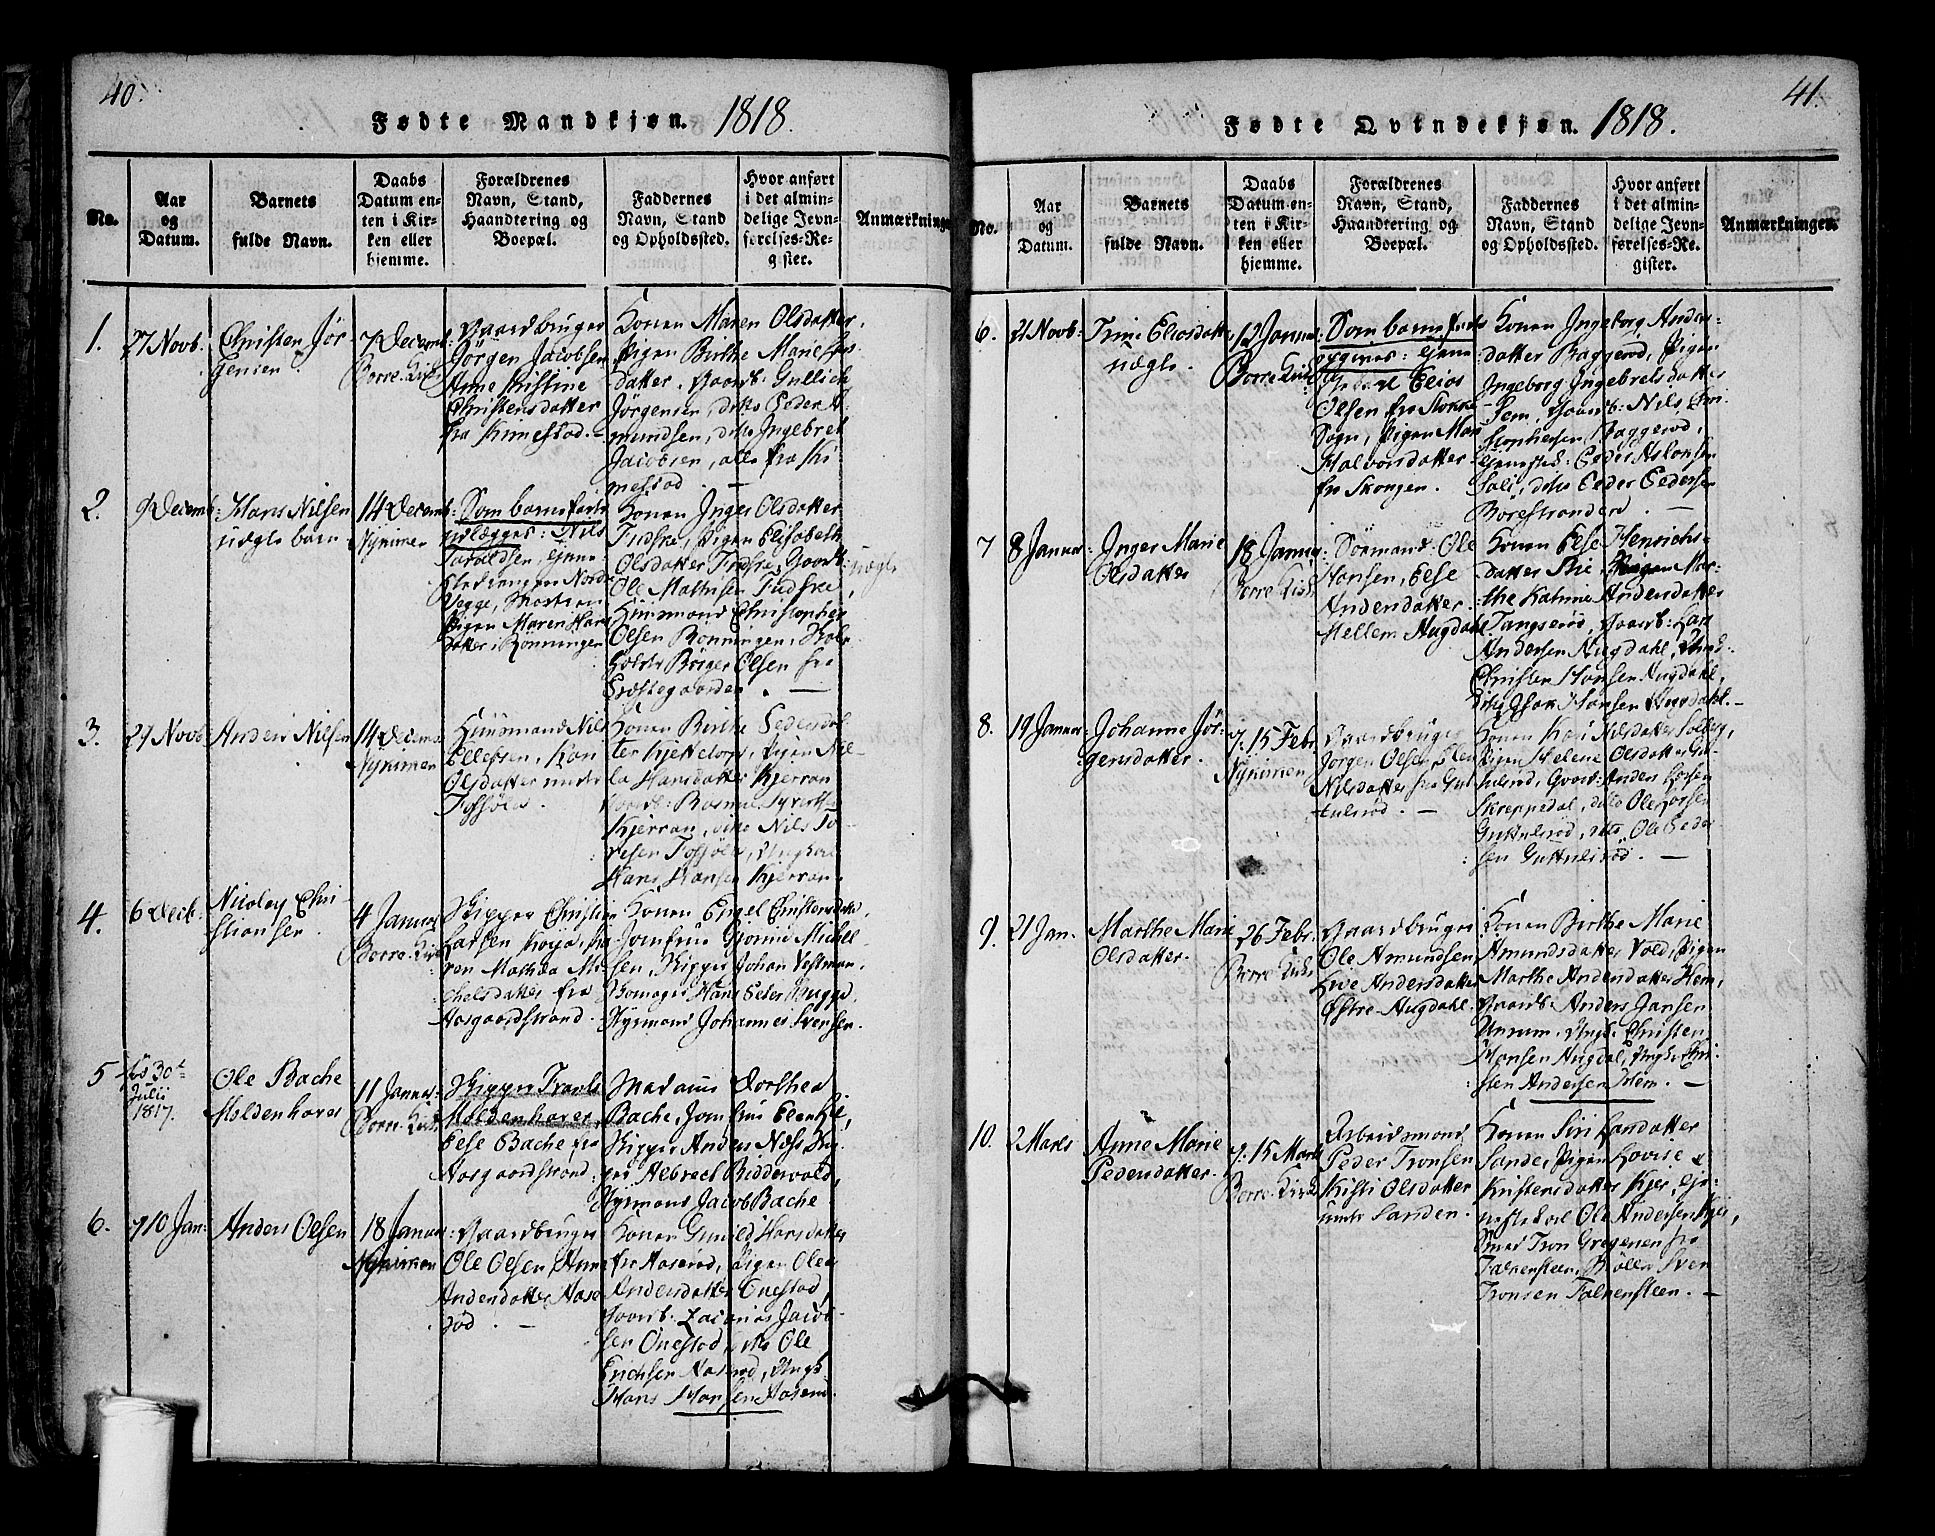 40.
Fødte Mandkjøn. 1818.
No.
Aar
og
Datum.
Barnets
fulde Navn.
Daabs
Datum en-
ten i Kir-
ken eller
hjemme.
Forældrenes
Navn, Stand,
Haandtering og
Boepæl.
Faddernes
Navn, Stand
og Opholdssted.
Hvor anført
i det almin-
delige Jevn-
førelses-Re-
gister.
Anmærkninger
1.
27 Novb.
Christen Jør-
gensen
7 Decemb:
Borre-Kirke
Gaardbruger
Jørgen Jacobsen
Anne Kistine
Christensdatter
fra Kimestad.
Konen Maren Olsdatter,
Pigen Birthe Marie
datter. Gaardb: Gullich
Jørgensen, dito Peder A-
mundsen, dito Ingebret
Jacobsen, alle fra Ki-
mestad.
2.
9 Decemb:
Hans Nilsen
uægte barn
14 Decemb:
Nykirken
Som barnefader
udlægges: Nils
Taraldsen,
Pigen Maren Hans
datter Rönningen
Konen Inger Olsdatter
Tudske, Pigen Elisabeth
Olsdatter Tudske, Gaardb:
Ole Mathisen Tudske,
Huusmand Christopher
Olsen Rönningen,
Børger Olsen fra
Præstegaarden. —
uægte
3.
29 Novb
Anders Nilsen
14 Decemb
Nykirken
Huusmand Nils
Ellefsen, Kari
Olsdatter under
Konen Birthe Pedersdat-
ter Kjeketorp, Pigen
Hansdatter Kjerran
Gaardb: Rasmus
Kjerran, dito Nils
Ungkarl
Hans Hansen Kjerran.
4.
6 Decb:
Nicolay Chri-
stiansen
4 Januar
Borre-Kirke
Skipper Christian
Larsen
Mi-
chelsdatter fra
Aasgaardstrand.
Konen Engel Christensdatt.
Jomfrue Michel-
sen, Skipper Johan Vestman,
Skomager Hans Peter Bugge,
Styrmand Johannes Svensen.
5
30te
Julii
1817.
Ole Bache
Moldenhaver
11 Januar
Borre-Kirke
Skipper
Moldenhaver,
Else Bache fra
Aasgaardstrand.
Madame Dorthea
Bache, Jomfrue
Skipper Anders Næss,
Albrect Ridderwold,
Styrmand Jacob Bache
6.
10 Jan:
Anders Olsen
18 Januar
Nykirken
Gaardbruger
Ole Olsen, Anne
Andersdatter Aase-
rød. —
Konen Gunild Hansdatter
fra Aaserød, Pigen Olea
Andersdatter Onestad,
Gaardb. Zacarias Jacob-
sen Onestad, dito Ole
Erichsen Aaserød, Ungk.
Hans Hansen Aaserød.
41.
Fødte Qvindekjøn. 1818.
No.
Aar
og
Datum.
Barnets
fulde Navn.
Daabs
Datum en-
ten i Kir-
ken eller
hjemme.
Forældrenes
Navn, Stand,
Haandtering og
Boepæl.
Faddernes
Navn, Stand
og Opholdssted.
Hvor anført
i det almin-
delige Jevn-
førelses-Re-
gister.
Anmærkninger.
6.
21 Novb:
Trine Eliasdatter
uægte.
12 Januar
Borre-Kirke
Som barnefader
opgives:
Elias
Olsen fra Stokke
Sogn, Pigen Mari
Halvorsdatter
fra Skongen.
Konen Ingeborg Anders-
datter Baggerød, Pigen
Ingeborg Ingebretsdatter
Sem, Gaardb: Nils Chri-
stophersen Baggerød,
Peder Aslaksen
dito Peder Pedersen
Borrestranden. —
7
8 Januar
Inger Marie
Olsdatter
18 Januar
Borre-Kirke
Sømand: Ole
Hansen, Else
Andersdatter
Mellem Augdahl
Konen Else Henrichs-
datter Mar-
the Katrine Andersdatter
Tangserød, Gaardb: Lars
Andersen Augdahl,
Christen Hansen Augdahl,
dito Isak Hansen Augdahl. —
8.
19 Januar
Johanne Jør-
gensdatter.
15 Febr.
Nykirken
Gaardbruger
Jørgen Olsen, Ellen
Nilsdatter fra Gut-
tulsrød. —
Konen Kari Nilsdatter Solberg,
Pigen Helene Olsdatter Gut-
tulsrød, Gaardb: Anders Larsen
Skreppedal, dito Ole Larsen
Guttulsrød, dito Ole Peder-
sen Guttulsrød. —
9.
21 Jan.
Marthe Marie
Olsdatter.
26 Febr.
Borre-Kirke
Gaardbruger
Ole Amundsen
Live Andersdatter
Østre Augdahl.
Konen Birthe Marie
Amundsdatter Vold, Pigen
Marthe Andersdatter Hem,
Gaardb: Anders Jansen
Unrum, Ungk. Christen
Hansen Augdal, Ungk. Chri-
sten Andersen Hem. —
10.
2 Marts
Anne Marie
Pedersdatter.
15 Marts
Borre-Kirke
Arbeidsmand
Peder Tronsen
Kisti Olsdatter
under Sanden.
Konen Siri Larsdatter
Sande, Pigen Lovise
Kristensdatter Kjer,
Ole Andersen Kjer,
Smed Tron Gregersen fra
Falkensteen, Møller Sven
Tronsen Falkensteen. —